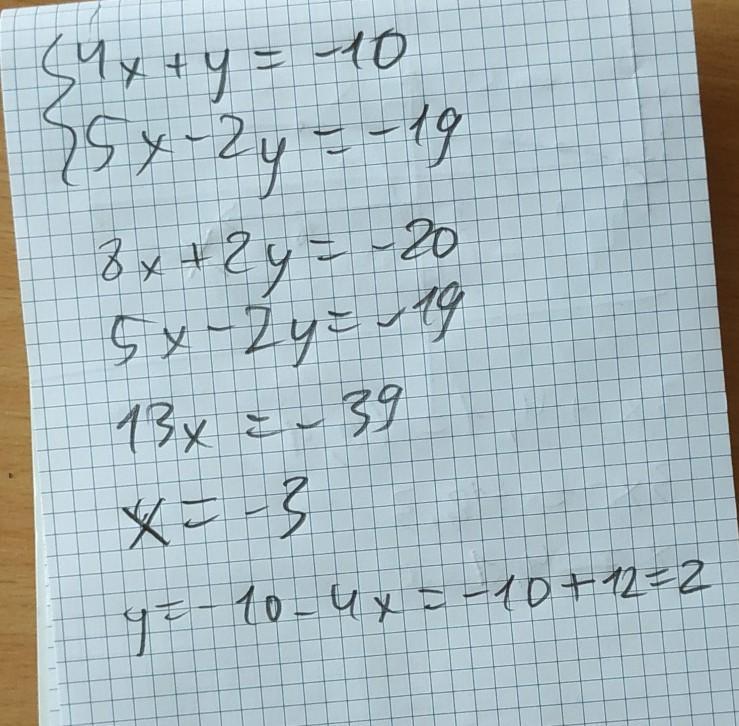 {4x+y=-10
5x-2y=-19
8x+2y=-20
5x-2y=-19
13x=-39
x=-3
y=-10-4x=-10+12=2